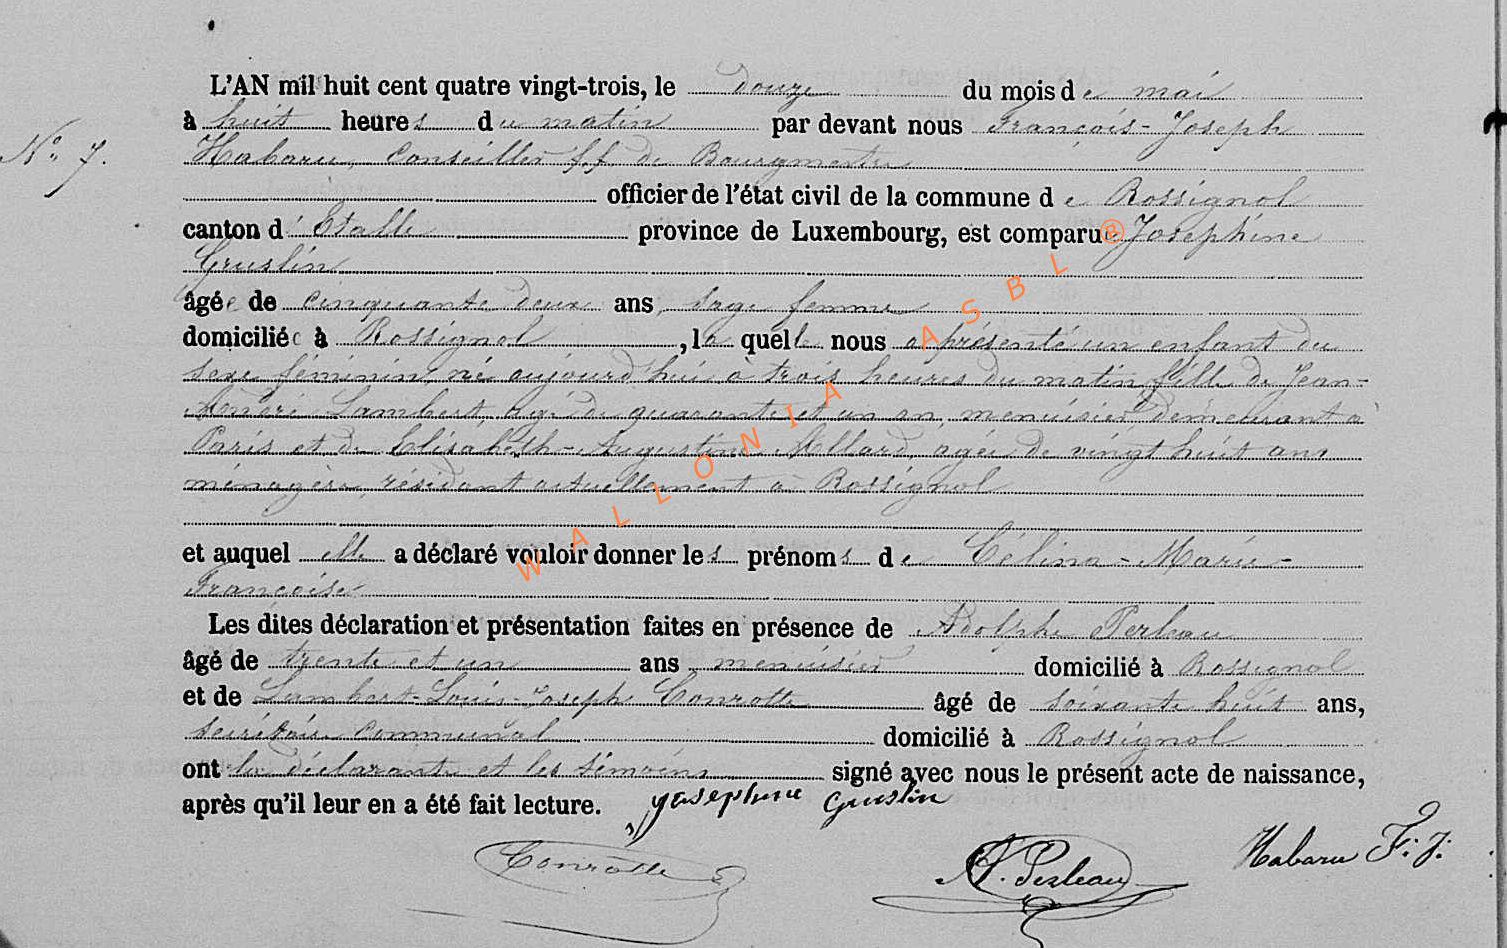 L'AN mil huit cent quatre vingt-trois, le douze du mois de mai
à huit heures du matin par devant nous François-Joseph
No. 7. Habaru, Conseiller f.f. de Bourgmestre
officier de l'état civil de la commune de Rossignol
canton d'Etalle province de Luxembourg, est comparue Josephine
Gruslin
âgée de cinquante deux ans, sage femme
domiciliée à Rossignol, laquelle nous a présenté un enfant du
sexe féminin, né aujourd'hui à trois heures du matin, fille de Jean-
André Lambert, agé de quarante et un an, menuisier demeurant à
Paris et de Elisabeth-Augustine Allard, agée de vingt huit ans
ménagère, résidant actuellement à Rossignol
et auquel elle a déclaré vouloir donner les prénoms de Célina-Marie-
Françoise
Les dites déclaration et présentation faites en présence de Adolphe Perleau
âgé de trente et un ans menuisier domicilié à Rossignol
et de Lambert-Louis-Joseph Conrotte âgé de soixante huit ans,
secrétaire communal domicilié à Rossignol
ont la déclarante et les témoins signé avec nous le présent acte de naissance,
après qu'il leur en a été fait lecture. Josephine Gruslin
Conrotte A. Perleau Habaru F. J.
WALLONIA ASBL ®